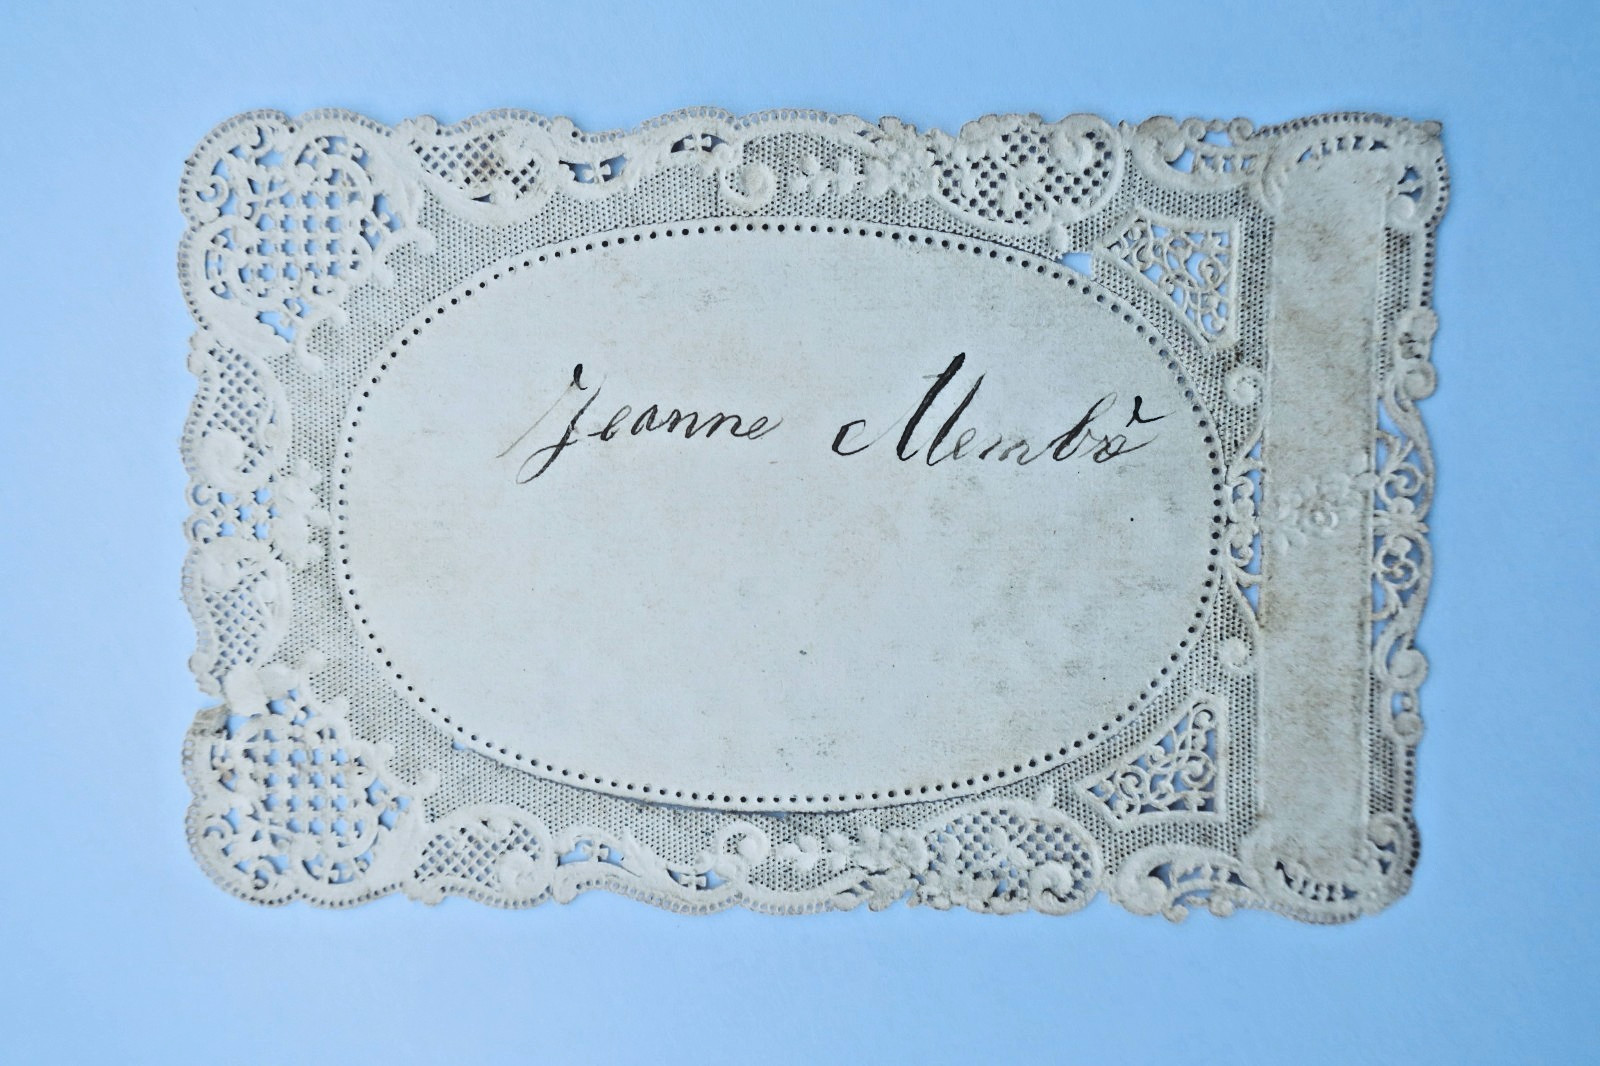 Jeanne Membrè